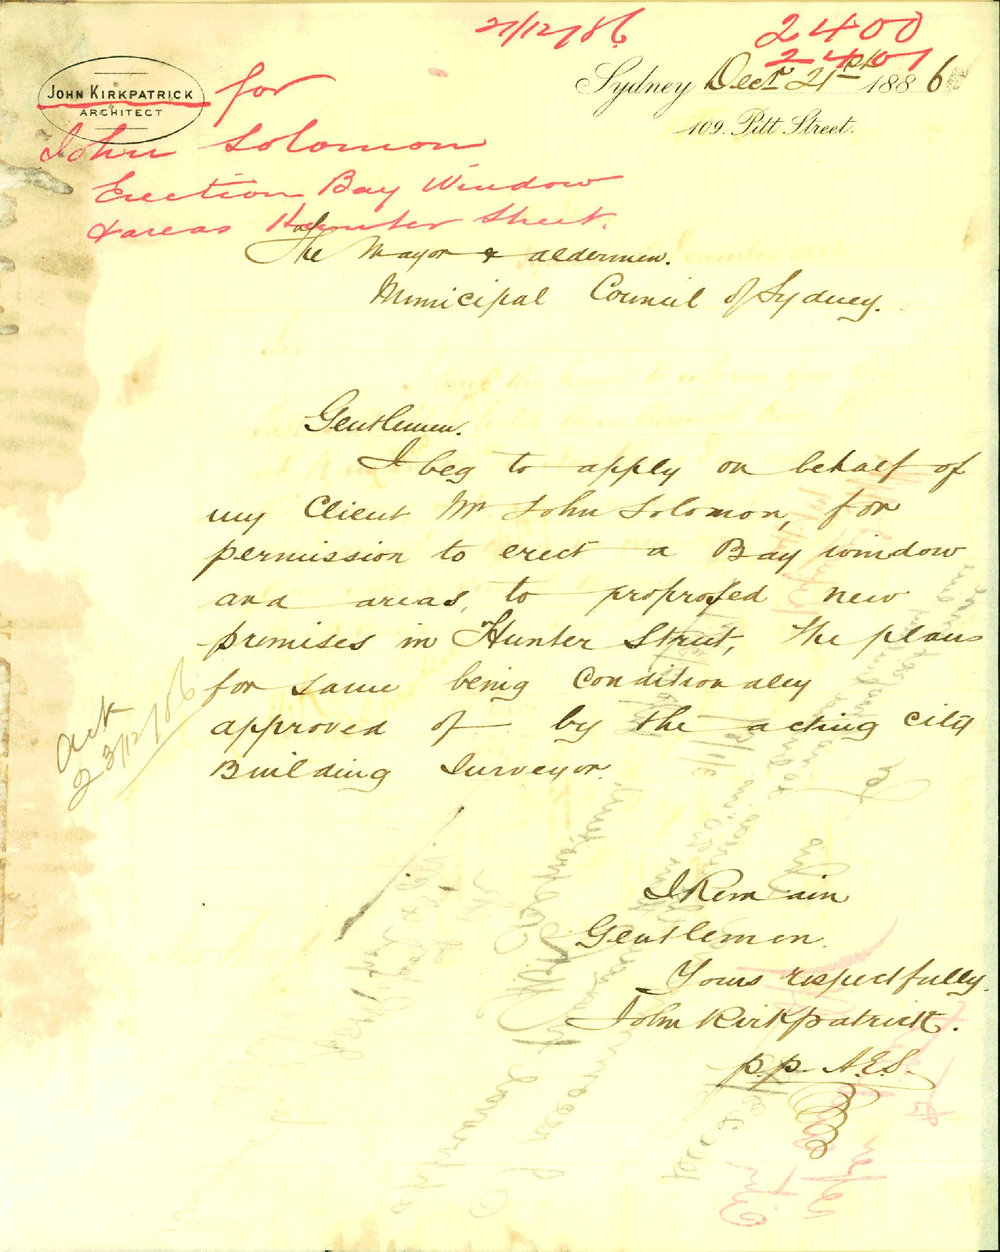 27/12/86
2400
2401
JOHN KIRKPATRICK
ARCHITECT
for
John Solomon
Erection Bay Window
& areas Hunter Street.
Sydney Decr. 21st 1886
109. Pitt Street.
The Mayor & Aldermen.
Municipal Council of Sydney.
Gentlemen.
I beg to apply on behalf of
my Client Mr John Solomon, for
permission to erect a Bay window
and areas, to proposed new
premises in Hunter Street, the plans
for same being Conditionaley
approved of by the acting City
Building Surveyor.
Ack
23/12/86
I Remain
Gentlemen.
Yours respectfully.
John Kirkpatrick.
p.p. A.E.S.